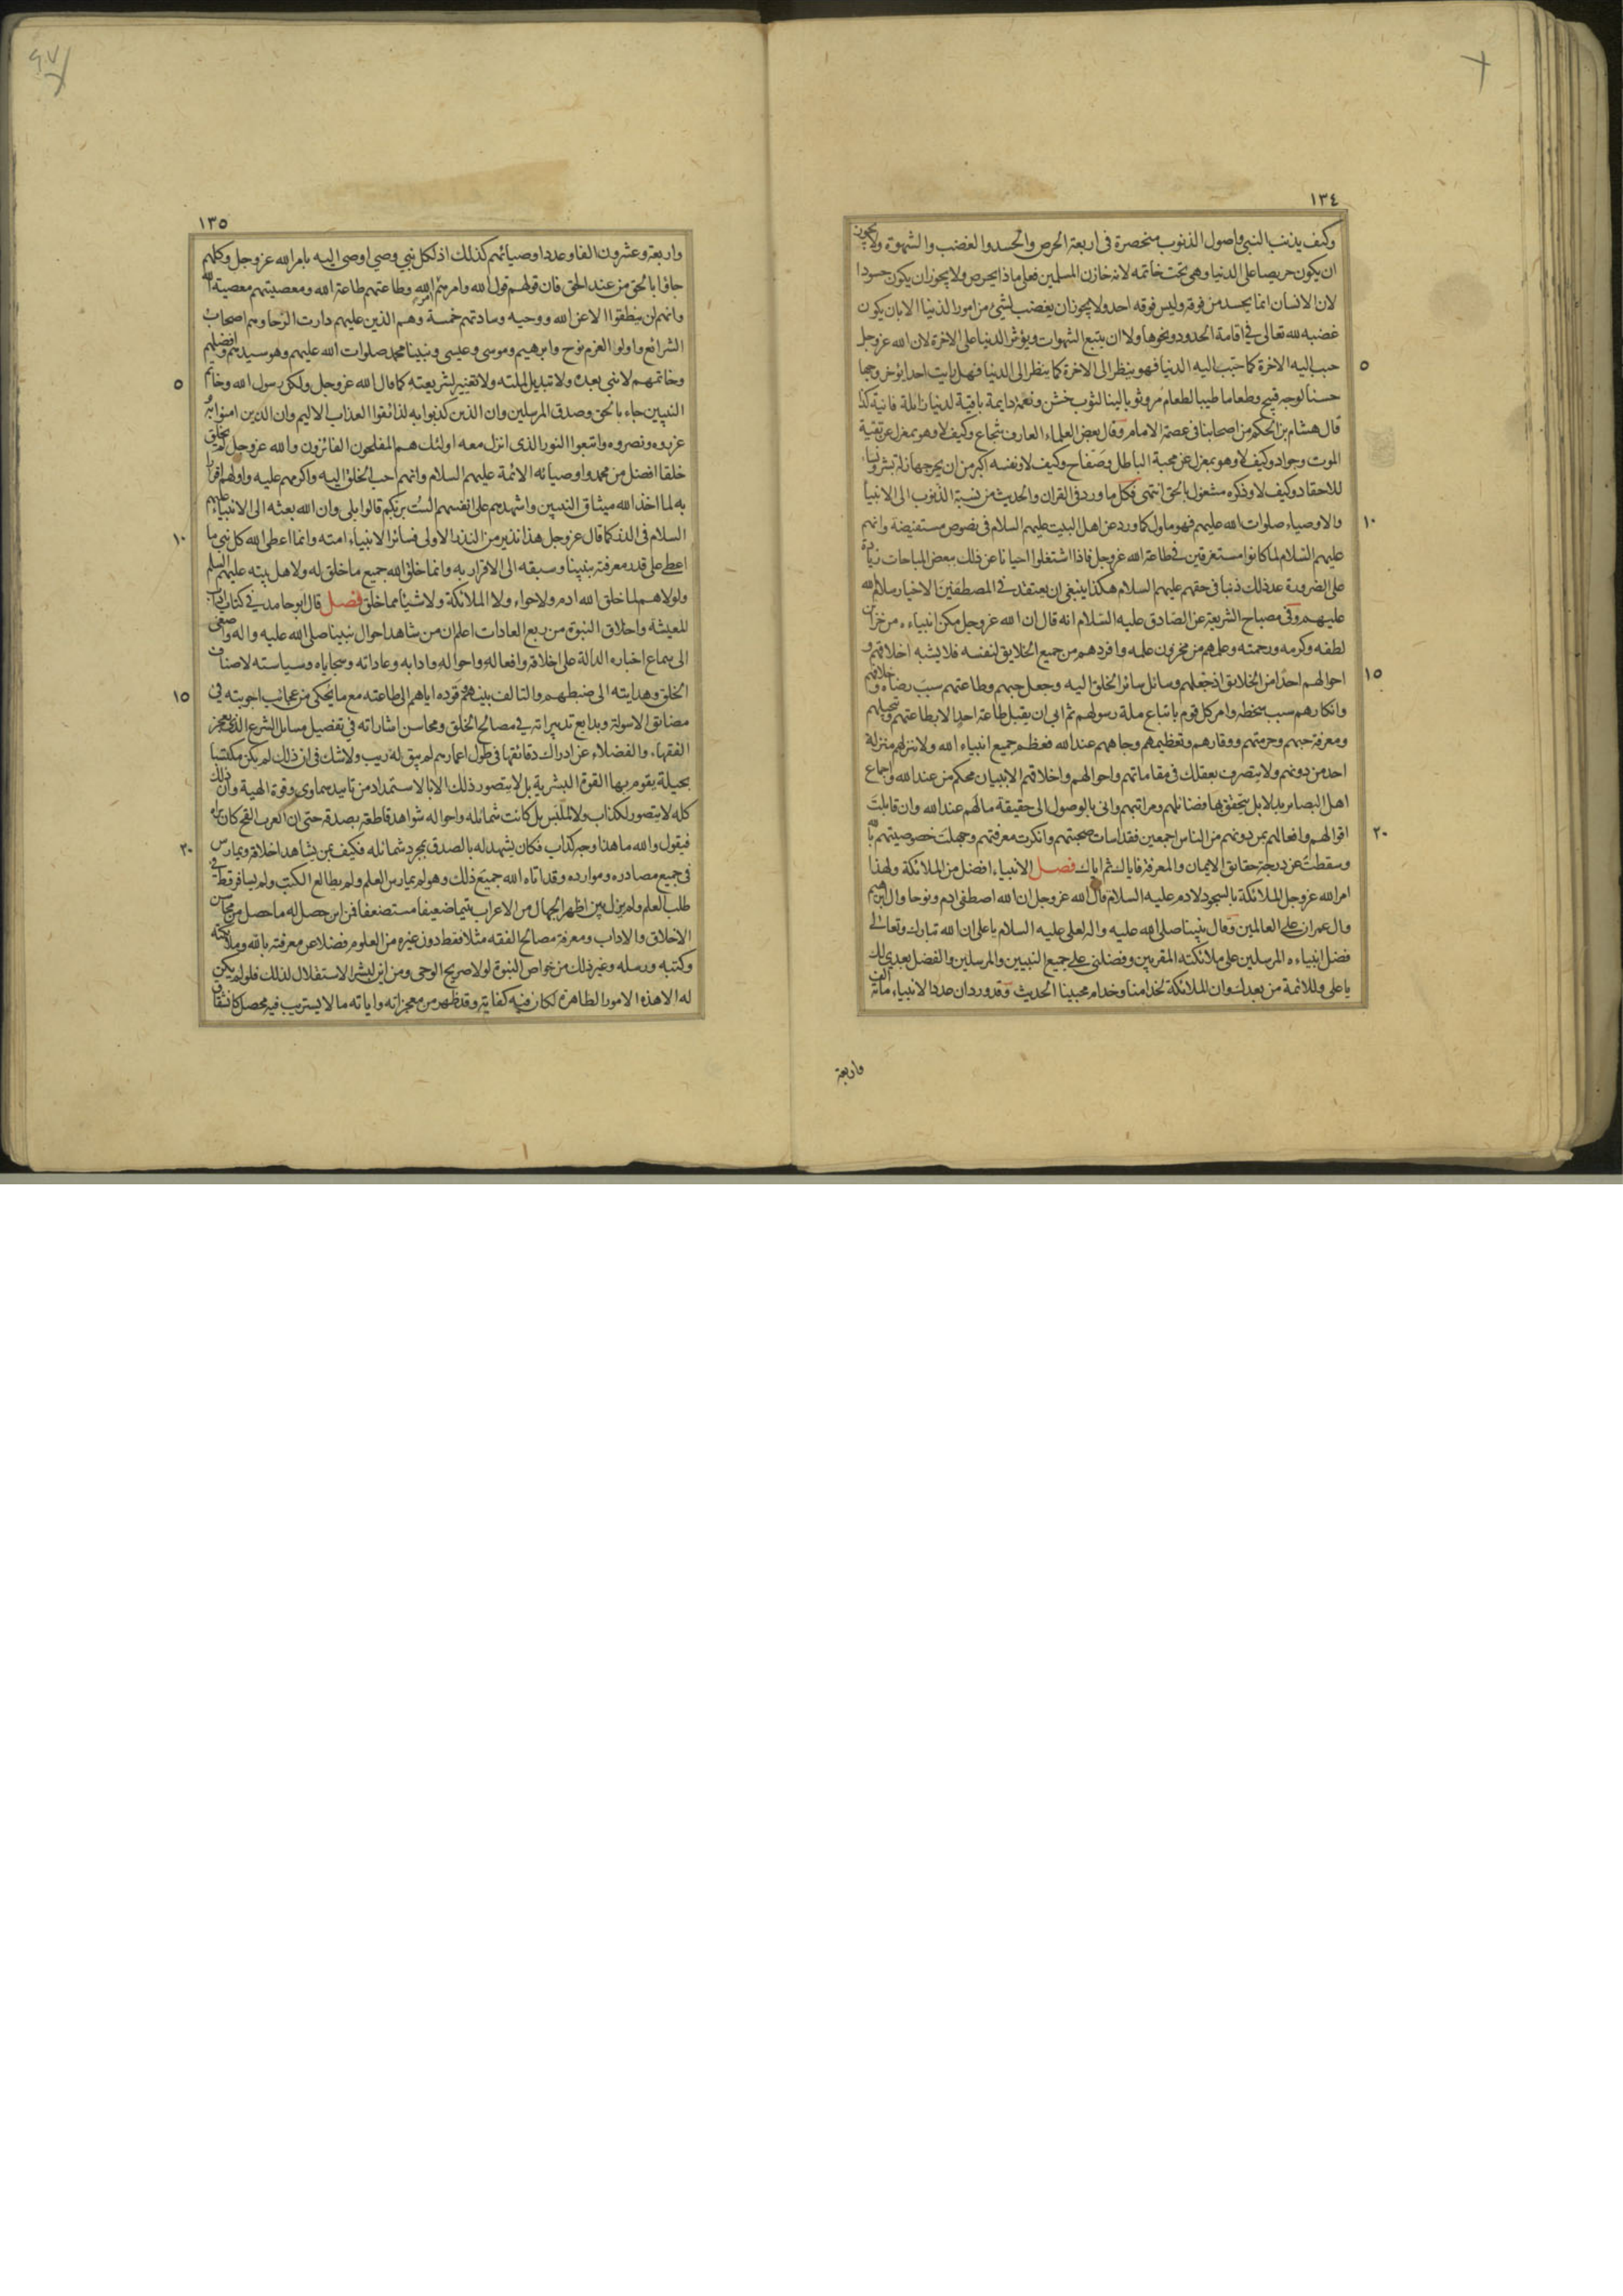 ١٣٤
وكيف يذنب النبي واصول الذنوب منحصرة في اربعة الحرص والحسد والغضب والشهوة ولا يجوز
ان يكون حريصا على الدنيا وهي تحت خاتمه لانه خازن المسلمين فعلى ماذا يحرص ولا يجوز ان يكون حسودا
لان الانسان انما يحسد من فوقه وليس فوقه احد ولا يجوز ان يغضب لشئ من امور الدنيا الا بان يكون
غضبه لله تعالى في اقامة الحدود ونحوها ولا ان يتبع الشهوات ويؤثر الدنيا على الاخرة لان الله عز وجل
حبب اليه الاخرة كما حبب اليه الدنيا فهو ينظر الى الاخرة كما ينظر الى الدنيا فهل رايت احدا يؤثر وجها
٥
حسنا لوجه قبيح وطعاما طيبا لطعام مر وثوبا لينا لثوب خشن ونعمة دايمة باقية لدنيا زائلة فانية كذا
قال هشام بن الحكم من اصحابنا في عصمة الامام وقال بعض العلماء العارف شجاع وكيف لا وهو بمعزل عن تقية
الموت وجواد وكيف لا وهو بمعزل عن محبة الباطل وصفاح وكيف لا ونفسه اكبر من ان يحرجها زلة بشر ونساء
للاحقاد وكيف لا وذكره مشغول بالحق انتهى فكل ما ورد في القران والحديث من نسبة الذنوب الى الانبيا
والاوصياء صلوات الله عليهم فهو ماول كما ورد عن اهل البيت عليهم السلام في نصوص مستفيضة وانهم
١٠
عليهم السلام لما كانوا مستغرقين في طاعة الله عز وجل فاذا اشتغلوا احيانا عن ذلك ببعض المباحات زيادة
على الضرورة عد ذلك ذنبا في حقهم عليهم السلام هكذا ينبغي ان يعتقد في المصطفين الاخيار سلام الله
عليهم وفي مصباح الشريعة عن الصادق عليه السلام انه قال ان الله عز وجل مكن انبياءه من خزائن
لطفه وكرمه ورحمته وعلمهم من مخزون علمه وافردهم من جميع الخلايق لنفسه فلا يشبه اخلاقهم و
احوالهم احدا من الخلايق اذ جعلهم وسائل سائر الخلق اليه وجعل حبهم وطاعتهم سبب رضاه وخلافهم
١٥
وانكارهم سبب سخطه وامر كل قوم باتباع ملة رسولهم ثم ابى ان يقبل طاعة احد الا بطاعتهم وتبجيلهم
ومعرفة حبهم وحرمتهم ووقارهم وتعظيمهم وجاههم عند الله فعظم جميع انبياء الله ولا تنزلهم منزلة
احد من دونهم ولا يتصرف بعقلك في مقاماتهم واحوالهم واخلاقهم الا ببيان محكم من عند الله واجماع
اهل البصاير بدلايل يتحقق بها فضائلهم ومراتبهم وانى بالوصول الى حقيقة ما لهم عند الله وان قابلت
اقوالهم وافعالهم بمن دونهم من الناس اجمعين فقد اسات صحبتهم وانكرت معرفتهم وجهلت خصوصيتهم بالله
٢٠
وسقطت عن درجة حقائق الايمان والمعرفة فاياك ثم اياك فصل الانبياء افضل من الملائكة ولهذا
امر الله عز وجل الملائكة بالسجود لادم عليه السلام قال الله عز وجل ان الله اصطفى ادم ونوحا وال ابرهيم
وال عمران على العالمين وقال نبينا صلى الله عليه واله لعلي عليه السلام يا علي ان الله تبارك وتعالى
فضل انبياءه المرسلين على ملائكته المقربين وفضلني على جميع النبيين والمرسلين والفضل بعدي لك
يا علي وللائمة من بعدك وان الملائكة لخدامنا وخدام محبينا الحديث وقد ورد ان عدد الانبياء مائة الف
واربعة
١٣٥
واربعة وعشرون الفا وعدد اوصيائهم كذلك اذ لكل نبي وصي اوصى اليه بامر الله عز وجل وكلهم
جاؤا بالحق من عند الحق فان قولهم قول الله وامرهم امر الله وطاعتهم طاعة الله ومعصيتهم معصية الله
وانهم لن ينطقوا الا عن الله ووحيه وسادتهم خمسة وهم الذين عليهم دارت الرحا وهم اصحاب
الشرائع واولوا العزم نوح وابرهيم وموسى وعيسى ونبينا محمد صلوات الله عليهم وهو سيدهم وافضلهم
وخاتمهم لا نبي بعده ولا تبديل لملته ولا تغيير لشريعته كما قال الله عز وجل ولكن رسول الله وخاتم
٥
النبيين جاء بالحق وصدق المرسلين وان الذين كذبوا به لذائقوا العذاب الاليم وان الذين امنوا به و
عزروه ونصروه واتبعوا النور الذي انزل معه اولئك هم المفلحون الفائزون والله عز وجل لم يخلق
خلقا افضل من محمد واوصيائه الائمة عليهم السلام وانهم احب الخلق اليه واكرمهم عليه واولهم اقرارا
به لما اخذ الله ميثاق النبيين واشهدهم على انفسهم الست بربكم قالوا بلى وان الله بعثه الى الانبياء عليهم
السلام في الذر كما قال عز وجل هذا نذير من النذر الاولى فسائر الانبياء امته وانما اعطى الله كل نبي ما
١٠
اعطى على قدر معرفته بنبينا وسبقه الى الاقرار به وانما خلق الله جميع ما خلق له ولاهل بيته عليهم السلم
ولولاهم لما خلق الله ادم ولا حواء ولا الملائكة ولا شيئا مما خلق فصل قال ابو حامد في كتاب اداب
المعيشة واخلاق النبوة من ربع العادات اعلم ان من شاهد احوال نبينا صلى الله عليه واله واصغى
الى سماع اخباره الدالة على اخلاقه وافعاله واحواله وادابه وعاداته وسجاياه وسياسته لاصناف
الخلق وهدايته الى ضبطهم والتالف بينهم وقوده اياهم الى طاعته مع ما يحكى من عجائب اجوبته في
١٥
مضائق الاسولة وبدايع تدبيراته في مصالح الخلق ومحاسن اشاراته في تفصيل مسائل الشرع الذي يعجز
الفقهاء والفضلاء عن ادراك دقائقها في طول اعمارهم لم يبق له ريب ولا شك في ان ذلك لم يكن مكتسبا
بحيلة يقوم بها القوة البشرية بل لا يتصور ذلك الا بالاستمداد من تاييد سماوي وقوة الهية وان ذلك
كله لا يتصور لكذاب ولا لملبس بل كانت شمائله واحواله شواهد قاطعة بصدقه حتى ان العرب القح كان يراه
فيقول والله ما هذا وجه كذاب فكان يشهد له بالصدق بمجرد شمائله فكيف بمن يشاهد اخلاقه ويمارس
٢٠
في جميع مصادره وموارده وقد اتاه الله جميع ذلك وهو لم يمارس العلم ولم يطالع الكتب ولم يسافر قط في
طلب العلم ولم يزل بين اظهر الجهال من الاعراب يتيما ضعيفا مستضعفا فمن اين حصل له ما حصل من محاسن
الاخلاق والاداب ومعرفة مصالح الفقه مثلا فقط دون غيره من العلوم فضلا عن معرفته بالله وملائكته
وكتبه ورسله وغير ذلك من خواص النبوة لولا صريح الوحي ومن اين لبشر الاستقلال لذلك فلو لم يكن
له الا هذه الامور الظاهرة لكان فيه كفاية وقد ظهر من معجزاته واياته ما لا يستريب فيه محصل كانشقاق